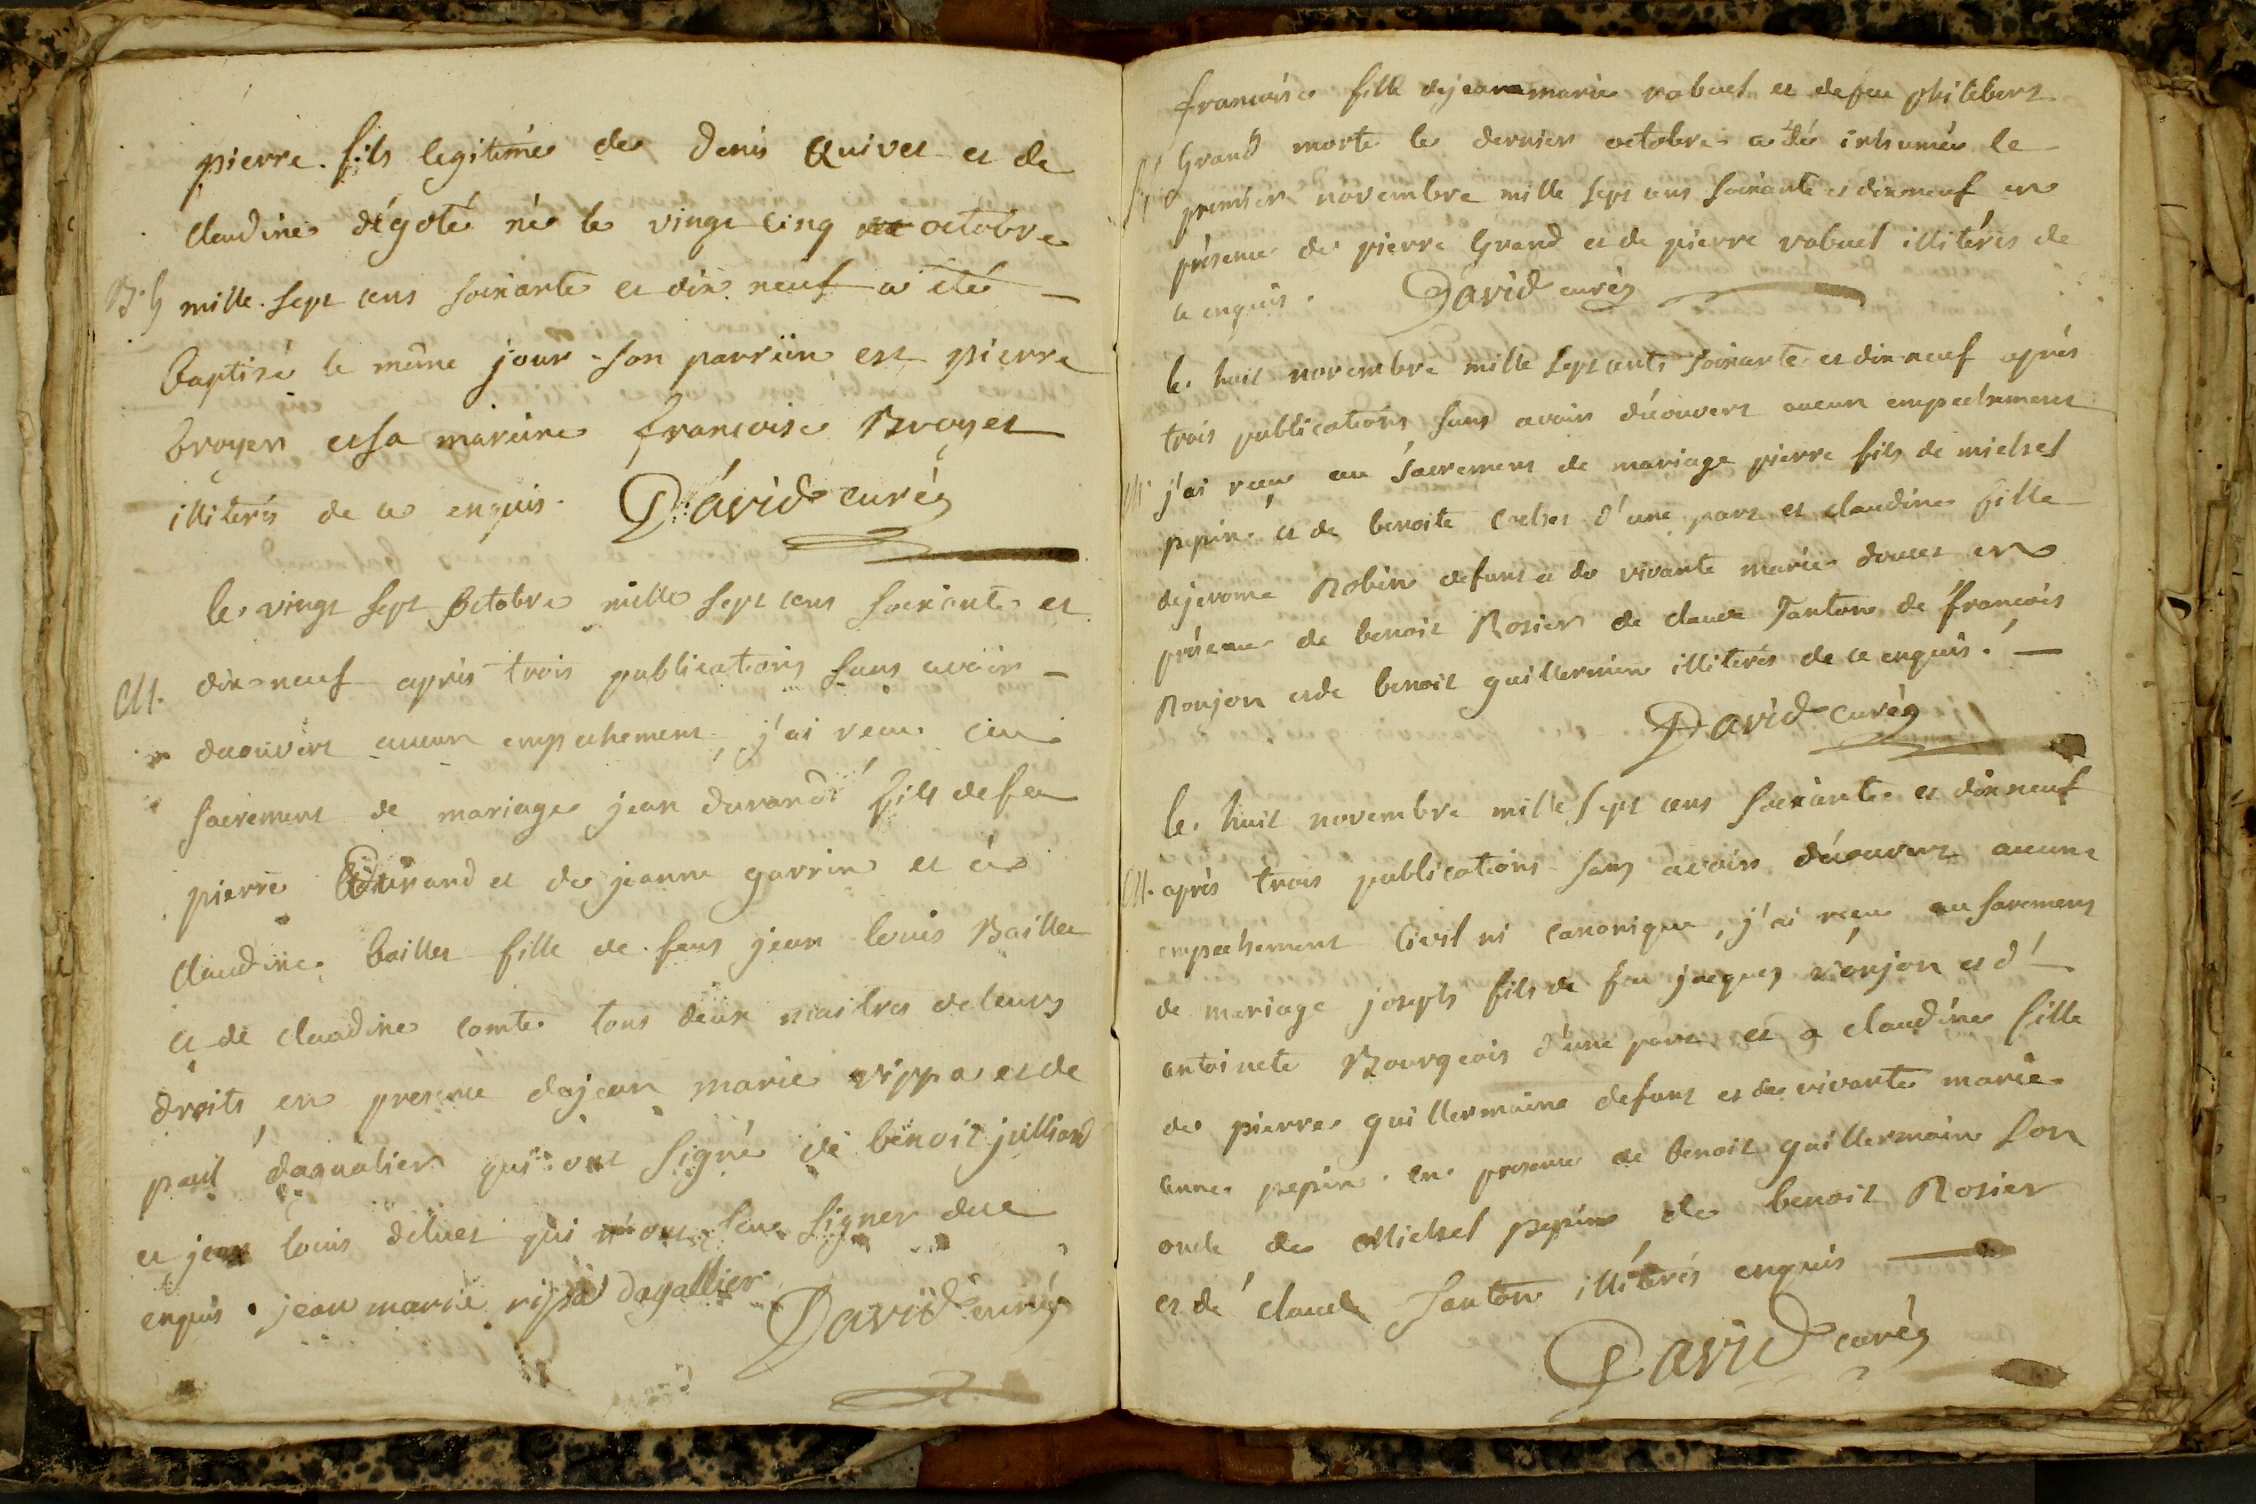 pierre fils legitime de denis quivet et de
claudine dégoté né le vingt cinq octobre
B. g mille sept cens soixante et dix neuf a été
baptisé le même jour son parrein est pierre
broyer et sa mareine francoise Broyer
illiterés de ce enquis. David curé
le vingt sept octobre mille sept cens soixante et
M. dix neuf après trois publications sans avoir
découvert aucun empechement j'ai recu au
sacrement de mariage jean durand fils de feu
pierre Durand et de jeanne garrin et à
claudine baillet fille de feus jean louis Baillet
et de claudine comte tous deux maitres de leurs
droits en presence de jean marie rippa et de
paul dagualier qui ont signé de benoit julliard
et jean louis deluet qui n'ont seu signer de ce
enquis. jean marie rippa dagallier David curé
francoise fille de jeanne marie rabuel et de feu philibert
grand morte le dernier octobre a été inhumée le
premier novembre mille sept cens soixante et dix neuf en
présence de pierre Grand et de pierre rabuel illitérés de
ce enquis. David curé
le huit novembre mille sept cents soixante et dix neuf après
trois publications sans avoir découvert aucun empechement
M. j'ai recu au sacrement de mariage pierre fils de michel
pepin et de benoite cochet d'une part et claudine fille
de jerome Robin defunt et de vivante marie doucet en
présence de benoit Rosier de claude Janton de francois
Ronjon et de benoit guillermin illiterés de ce enquis.
David curé
le huit novembre mille sept cens soixante et dix neuf
M. après trois publications sans avoir découvert aucune
empechement civil ni canonique, j'ai recu au sacrement
de mariage joseph fils de feu jacques ronjon et d'
antoinete Bourgeois d'une part et a claudine fille
de pierre guillermaine defunt et de vivante marie
anne pepin. en presence de benoit guillermain son
oncle de Michel pepin de benoit Rosier
et de claude Janton illiterés enquis
David curé